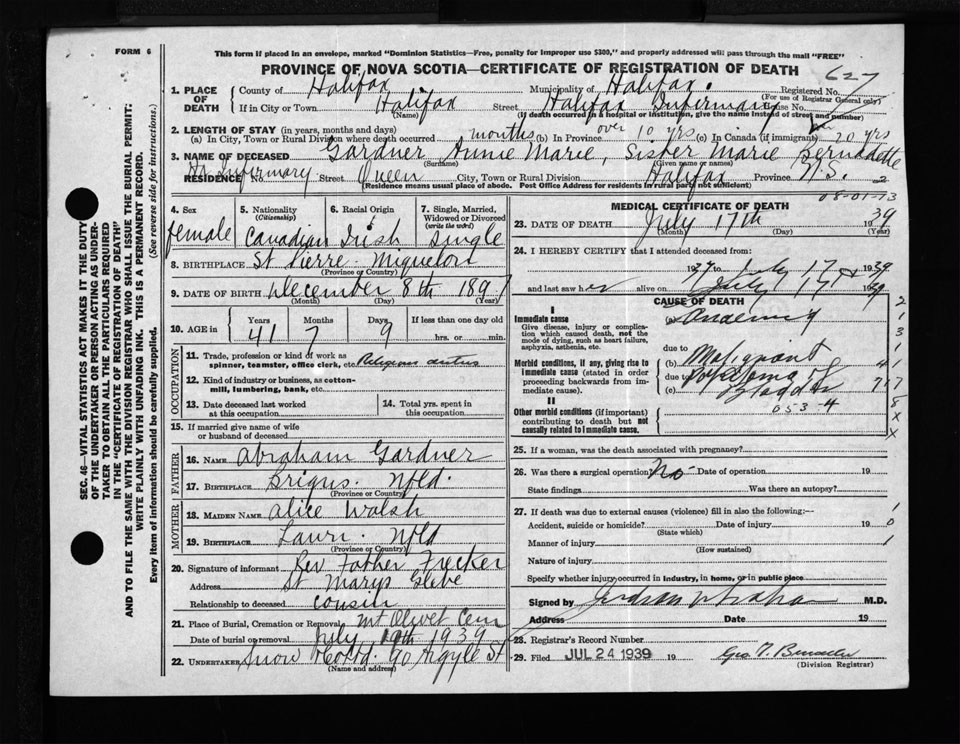 FORM 6
This form if placed in an envelope, marked "Dominion Statistics—Free, penalty for improper use $300," and properly addressed will pass through the mail "FREE"
PROVINCE OF NOVA SCOTIA—CERTIFICATE OF REGISTRATION OF DEATH
627
1. PLACE OF DEATH
County of Halifax Municipality of Halifax. Registered No.
(For use of Registrar General only)
If in City or Town Halifax Street Halifax Infirmary House No.
(Name) (If death occurred in a hospital or institution, give the name instead of street and number)
2. LENGTH OF STAY (in years, months and days)
(a) In City, Town or Rural Division where death occurred months (b) In Province over 10 yrs (c) In Canada (if immigrant) over 20 yrs
3. NAME OF DECEASED Gardner Annie Marie, Sister Marie Bernadette
(Surname) (Given name or names)
RESIDENCE No. Hx Infirmary Street Queen City, Town or Rural Division Halifax Province N.S. 2
(Residence means usual place of abode. Post Office Address for residents in rural part not sufficient)
08-01-73
4. Sex female
5. Nationality (Citizenship) Canadian
6. Racial Origin Irish
7. Single, Married, Widowed or Divorced (write the word) Single
8. BIRTHPLACE St Pierre - Miquelon
(Province or Country)
9. DATE OF BIRTH December 8th 1897
(Month) (Day) (Year)
10. AGE in Years Months Days If less than one day old
41 7 9 hrs. or min.
OCCUPATION
11. Trade, profession or kind of work as spinner, teamster, office clerk, etc. Religious duties
12. Kind of industry or business, as cotton-mill, lumbering, bank, etc.
13. Date deceased last worked at this occupation
14. Total yrs. spent in this occupation
15. If married give name of wife or husband of deceased
FATHER
16. NAME Abraham Gardner
17. BIRTHPLACE Brigus Nfld.
(Province or Country)
MOTHER
18. MAIDEN NAME Alice Walsh
19. BIRTHPLACE Nfld
(Province or Country)
20. Signature of informant Rev Father Frecker
Address St Marys Glebe
Relationship to deceased cousin
21. Place of Burial, Cremation or Removal Mt Olivet Cem
Date of burial or removal July 19th 1939
22. UNDERTAKER Snow & Co Ltd. 90 Argyle St
(Name and address)
MEDICAL CERTIFICATE OF DEATH
23. DATE OF DEATH July 17th 1939
(Month) (Day) (Year)
24. I HEREBY CERTIFY that I attended deceased from:
1937 to July 17 1939
and last saw her alive on July 17 1939
CAUSE OF DEATH
I
Immediate cause
Give disease, injury or complication which caused death, not the mode of dying, such as heart failure, asphyxia, asthenia, etc.
(a) Anaemia
due to
Morbid conditions, if any, giving rise to immediate cause (stated in order proceeding backwards from immediate cause).
(b) Malignant
due to
(c)
053-4
II
Other morbid conditions (if important) contributing to death but not causally related to immediate cause.
25. If a woman, was the death associated with pregnancy?
26. Was there a surgical operation? No Date of operation 19
State findings Was there an autopsy?
27. If death was due to external causes (violence) fill in also the following:—
Accident, suicide or homicide? Date of injury 19
(State which)
Manner of injury
(How sustained)
Nature of injury
Specify whether injury occurred in industry, in home, or in public place
Signed by M.D.
Address Date 19
28. Registrar's Record Number
29. Filed JUL 24 1939 19
(Division Registrar)
SEC. 46—VITAL STATISTICS ACT MAKES IT THE DUTY
OF THE UNDERTAKER OR PERSON ACTING AS UNDER-
TAKER TO OBTAIN ALL THE PARTICULARS REQUIRED
IN THE "CERTIFICATE OF REGISTRATION OF DEATH"
AND TO FILE THE SAME WITH THE DIVISION REGISTRAR WHO SHALL ISSUE THE BURIAL PERMIT.
WRITE PLAINLY WITH UNFADING INK. THIS IS A PERMANENT RECORD.
Every item of information should be carefully supplied. (See reverse side for instructions.)